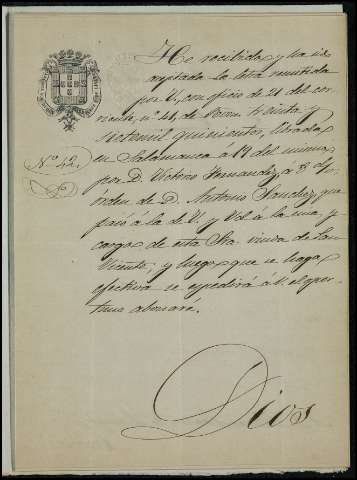 He recibido y ha sido
aceptada la letra remitida
por V., con oficio de 21 del cor-
riente, nº 44, de treinta y
seis mil quinientos, librada
en Salamanca á 19 del mismo
por D. Victorio Fernandez, á 8 d/v
órden de D. Antonio Sanchez, que
pasó á la de V. y Vd á la mia, y
cargo de esta Sra. viuda de San
Vicente; y luego que se haga
efectiva se expedirá á V. el opor-
tuno abonaré.
Nº 42.
Dios